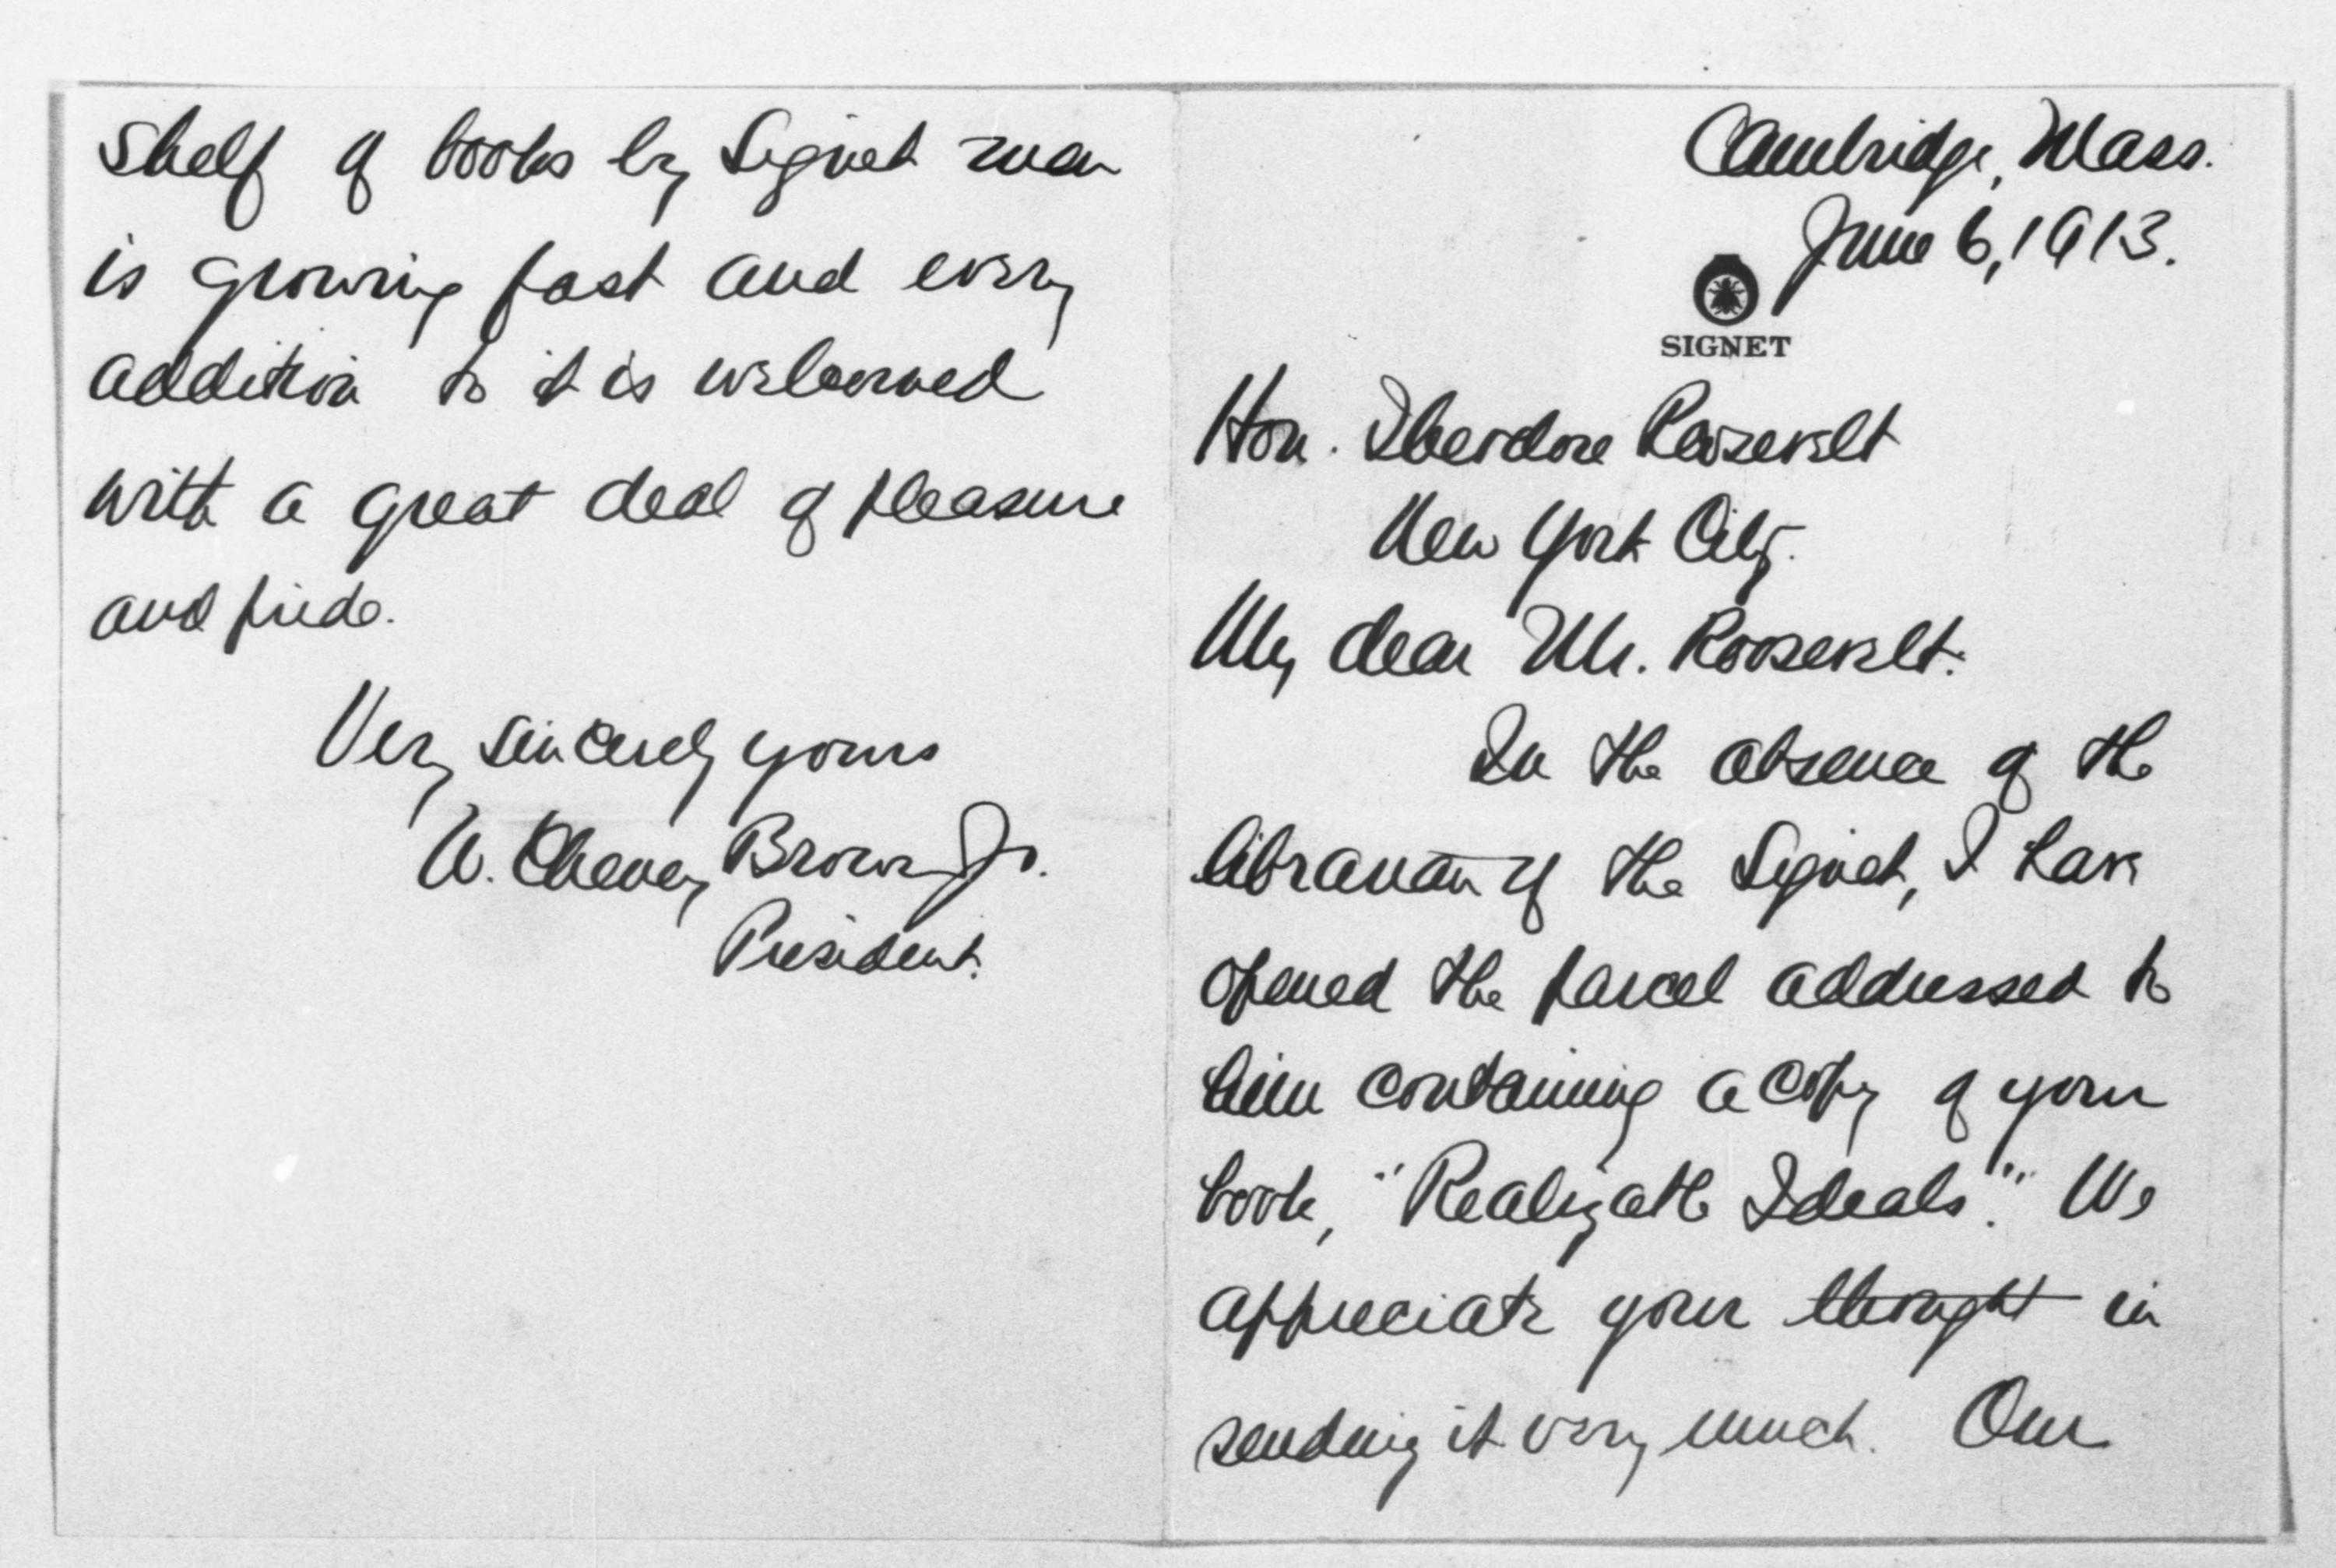 Cambridge, Mass.
June 6, 1913.
SIGNET
Hon. Theodore Roosevelt
New York City.
My dear Mr. Roosevelt:
In the absence of the
librarian of the Signet, I have
opened the parcel addressed to
him containing a copy of your
book, "Realizable Ideals." We
appreciate your thought in
sending it very much. Our
shelf of books by Signet men
is growing fast and every
addition to it is welcomed
with a great deal of pleasure
and pride.
Very sincerely yours
W. Cheney Brown Jr.
President.